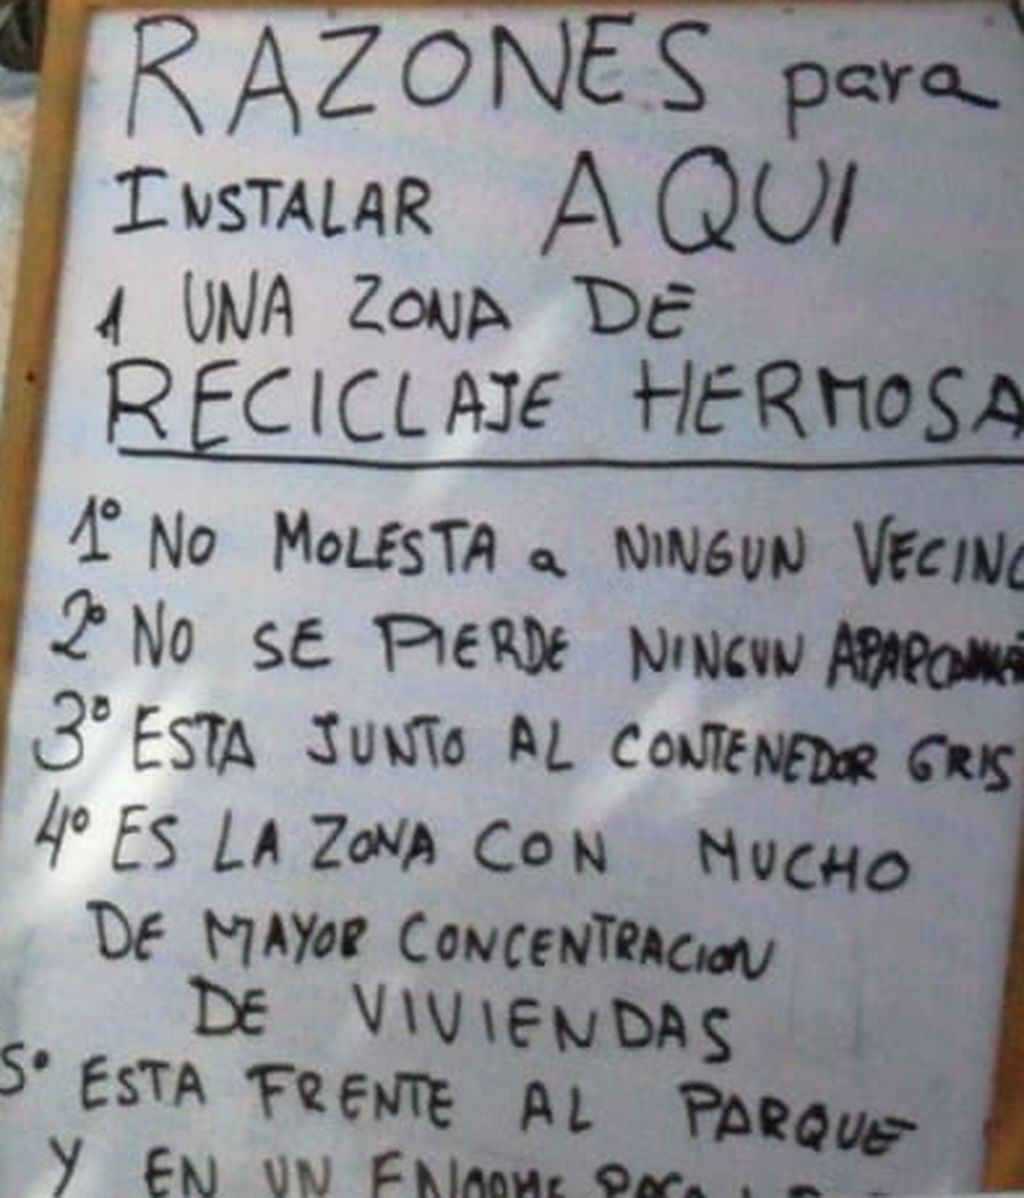 RAZONES para
INSTALAR AQUI
1 UNA ZONA DE
RECICLAJE HERMOSA
1º NO MOLESTA a NINGUN VECINO
2º NO SE PIERDE NINGUN
3º ESTA JUNTO AL CONTENEDOR GRIS
4º ES LA ZONA CON MUCHO
DE MAYOR CONCENTRACION
DE VIVIENDAS
5º ESTA FRENTE AL PARQUE
Y EN UN ENORME